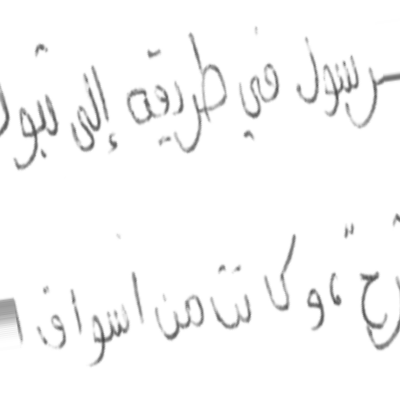 رسول في طريقه إلى تبوك
قرح"، وكانت من أسواق ا